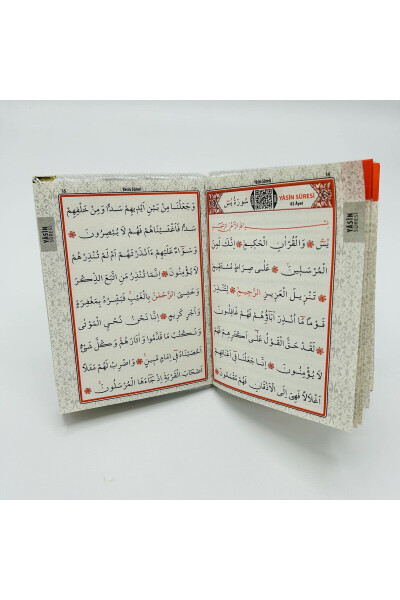 14
Yâsîn Sûresi
سُورَةُ يٰسٓ
YÂSÎN SÛRESİ
83 Âyet
يٰسٓ ۞ وَالْقُرْاٰنِ الْحَكٖيمِ ۞ اِنَّكَ لَمِنَ
الْمُرْسَلٖينَ ۞ عَلٰى صِرَاطٍ مُسْتَقٖيمٍ
۞ تَنْزٖيلَ الْعَزٖيزِ الرَّحٖيمِ ۞ لِتُنْذِرَ
قَوْمًا مَٓا اُنْذِرَ اٰبَٓاؤُهُمْ فَهُمْ غَافِلُونَ
۞ لَقَدْ حَقَّ الْقَوْلُ عَلٰٓى اَكْثَرِهِمْ فَهُمْ
لَا يُؤْمِنُونَ ۞ اِنَّا جَعَلْنَا فٖٓي اَعْنَاقِهِمْ
اَغْلَالًا فَهِيَ اِلَى الْاَذْقَانِ فَهُمْ مُقْمَحُونَ ۞
YÂSÎN
SÛRESİ
Yâsîn Sûresi
وَجَعَلْنَا مِنْ بَيْنِ اَيْدٖيهِمْ سَدًّا وَمِنْ خَلْفِهِمْ
سَدًّا فَاَغْشَيْنَاهُمْ فَهُمْ لَا يُبْصِرُونَ ۞
وَسَوَٓاءٌ عَلَيْهِمْ ءَاَنْذَرْتَهُمْ اَمْ لَمْ تُنْذِرْهُمْ
لَا يُؤْمِنُونَ ۞ اِنَّمَا تُنْذِرُ مَنِ اتَّبَعَ الذِّكْرَ
وَخَشِيَ الرَّحْمٰنَ بِالْغَيْبِ فَبَشِّرْهُ بِمَغْفِرَةٍ
وَاَجْرٍ كَرٖيمٍ ۞ اِنَّا نَحْنُ نُحْيِ الْمَوْتٰى
وَنَكْتُبُ مَا قَدَّمُوا وَاٰثَارَهُمْ وَكُلَّ شَيْءٍ
اَحْصَيْنَاهُ فٖٓي اِمَامٍ مُبٖينٍ ۞ وَاضْرِبْ لَهُمْ مَثَلًا
اَصْحَابَ الْقَرْيَةِ اِذْ جَٓاءَهَا الْمُرْسَلُونَ ۞